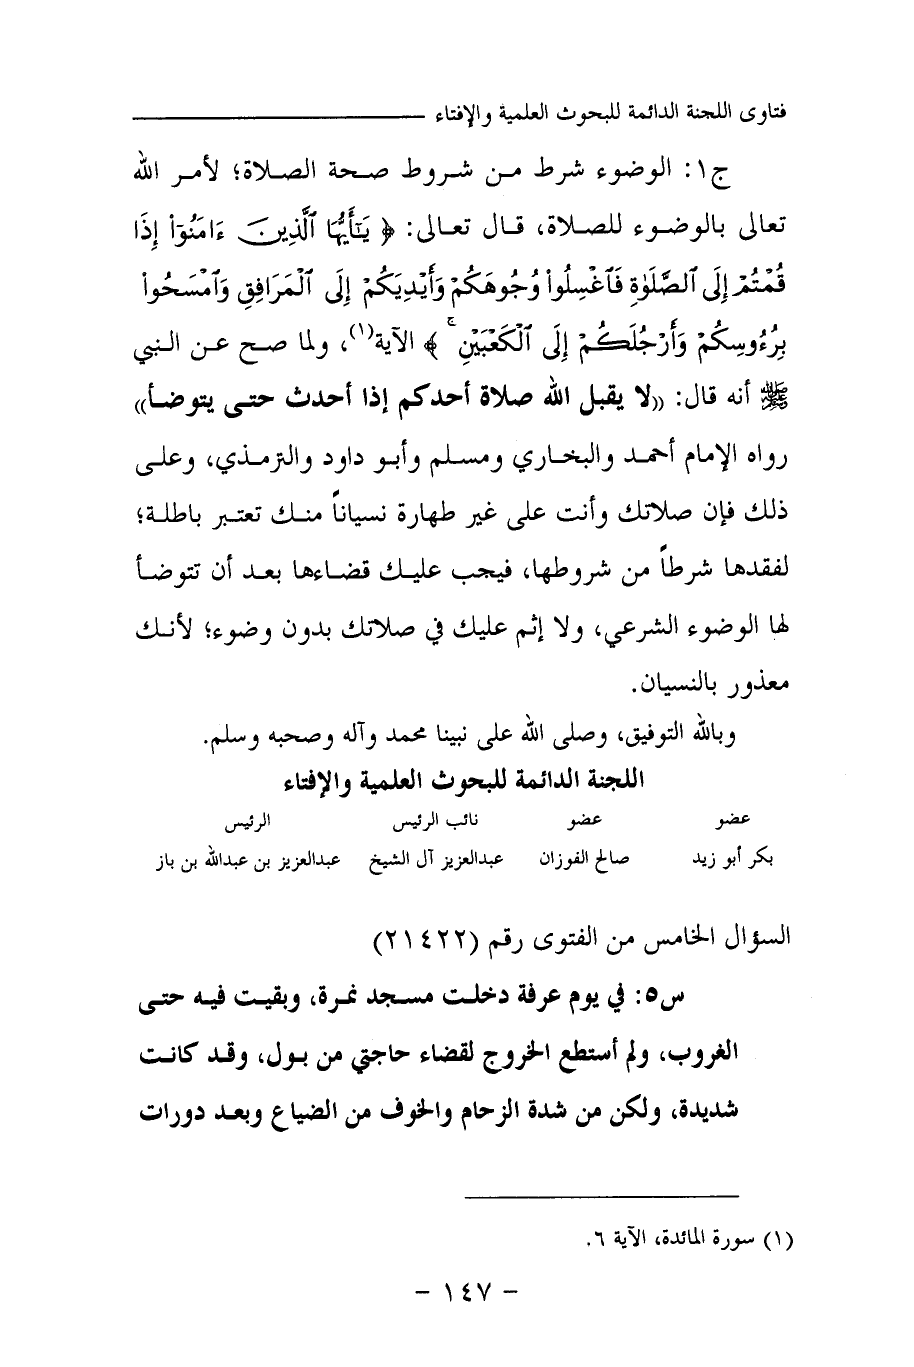 فتاوى اللجنة الدائمة للبحوث العلمية والإفتاء
ج١: الوضوء شرط من شروط صحة الصلاة؛ لأمر الله
تعالى بالوضوء للصلاة، قال تعالى: ﴿ يَٰٓأَيُّهَا ٱلَّذِينَ ءَامَنُوٓا۟ إِذَا
قُمْتُمْ إِلَى ٱلصَّلَوٰةِ فَٱغْسِلُوا۟ وُجُوهَكُمْ وَأَيْدِيَكُمْ إِلَى ٱلْمَرَافِقِ وَٱمْسَحُوا۟
بِرُءُوسِكُمْ وَأَرْجُلَكُمْ إِلَى ٱلْكَعْبَيْنِ ۚ ﴾ الآية(١)، ولما صح عن النبي
ﷺ أنه قال: «لا يقبل الله صلاة أحدكم إذا أحدث حتى يتوضأ»
رواه الإمام أحمد والبخاري ومسلم وأبو داود والترمذي، وعلى
ذلك فإن صلاتك وأنت على غير طهارة نسياناً منك تعتبر باطلة؛
لفقدها شرطاً من شروطها، فيجب عليك قضاءها بعد أن تتوضأ
لها الوضوء الشرعي، ولا إثم عليك في صلاتك بدون وضوء؛ لأنك
معذور بالنسيان.
وبالله التوفيق، وصلى الله على نبينا محمد وآله وصحبه وسلم.
اللجنة الدائمة للبحوث العلمية والإفتاء
عضو عضو نائب الرئيس الرئيس
بكر أبو زيد صالح الفوزان عبدالعزيز آل الشيخ عبدالعزيز بن عبدالله بن باز
السؤال الخامس من الفتوى رقم (٢١٤٢٢)
س٥: في يوم عرفة دخلت مسجد نمرة، وبقيت فيه حتى
الغروب، ولم أستطع الخروج لقضاء حاجتي من بول، وقد كانت
شديدة، ولكن من شدة الزحام والخوف من الضياع وبعد دورات
(١) سورة المائدة، الآية ٦.
- ١٤٧ -